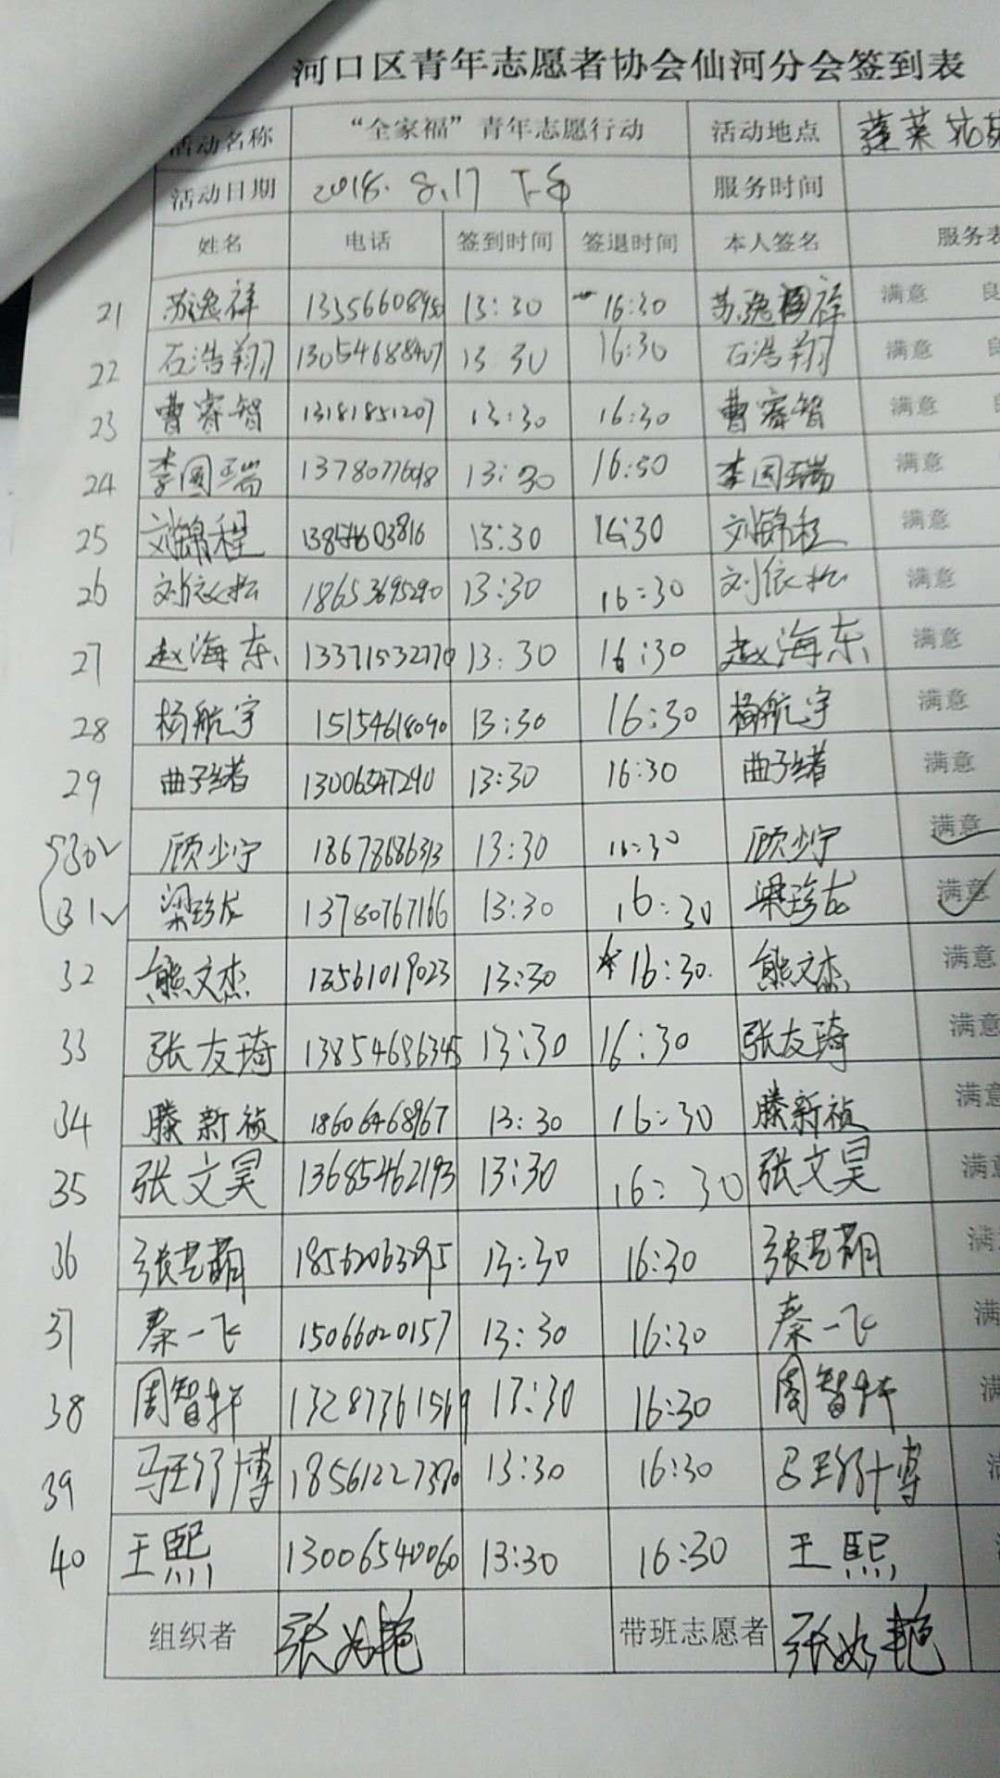 河口区青年志愿者协会仙河分会签到表
活动名称 “全家福”青年志愿行动 活动地点 蓬莱
活动日期 2018.8.17 下午 服务时间
姓名 电话 签到时间 签退时间 本人签名 服务表
21 苏逸祥 13:30 16:30 苏逸祥 满意 良
22 石浩翔 13054688407 13:30 16:30 石浩翔 满意 良
23 曹睿智 13181851207 13:30 16:30 曹睿智 满意 良
24 李国瑞 13:30 16:30 李国瑞 满意
25 刘锦程 13854603816 13:30 16:30 刘锦程 满意
26 刘依松 18653695290 13:30 16:30 刘依松 满意
27 赵海东 13371532770 13:30 16:30 赵海东 满意
28 杨航宇 15154618090 13:30 16:30 杨航宇 满意
29 曲子绪 13006547290 13:30 16:30 曲子绪 满意
30 顾少宁 18678686313 13:30 16:30 顾少宁 满意
31 梁珍龙 13780767166 13:30 16:30 梁珍龙 满意
32 熊文杰 13561019023 13:30 16:30 熊文杰 满意
33 张友琦 13854686345 13:30 16:30 张友琦 满意
34 滕新祯 18606468967 13:30 16:30 滕新祯 满意
35 张文昊 13685462193 13:30 16:30 张文昊 满意
36 张艺萌 18562063295 13:30 16:30 张艺萌 满
37 秦一飞 15066020157 13:30 16:30 秦一飞 满
38 周智轩 13287361569 13:30 16:30 周智轩 满
39 18561227370 13:30 16:30
40 王熙 13006540060 13:30 16:30 王熙
组织者 带班志愿者